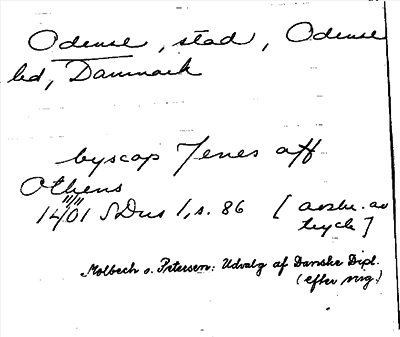 Odense, stad, Odense
hd, Danmark
byscop Jenes aff
Othens
1401 SDns 1, s. 86 [avskr. av
tryck]
Molbech o. Petersen: Udvalg af Danske Dipl.
(efter orig.)